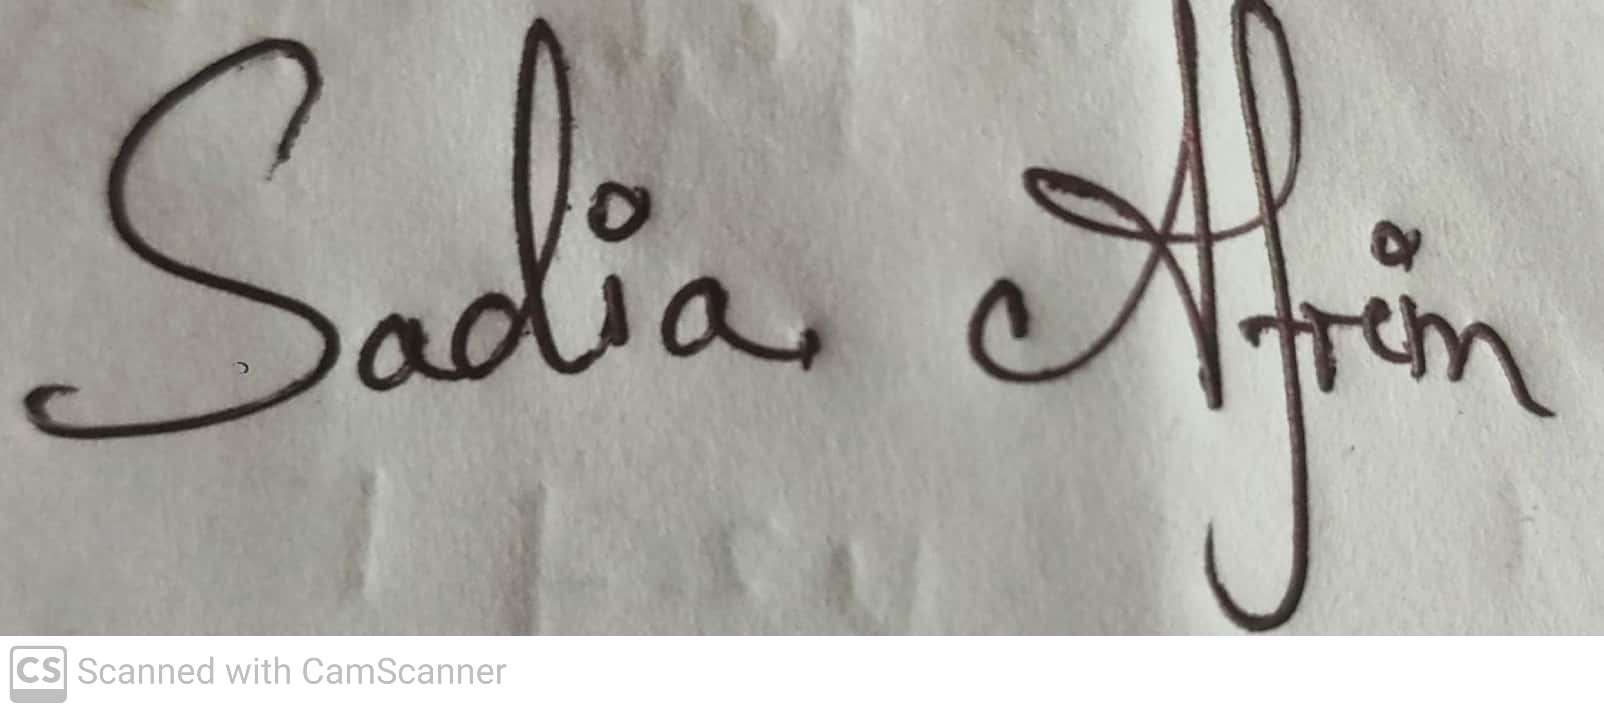 Sadia Afrin
CS Scanned with CamScanner